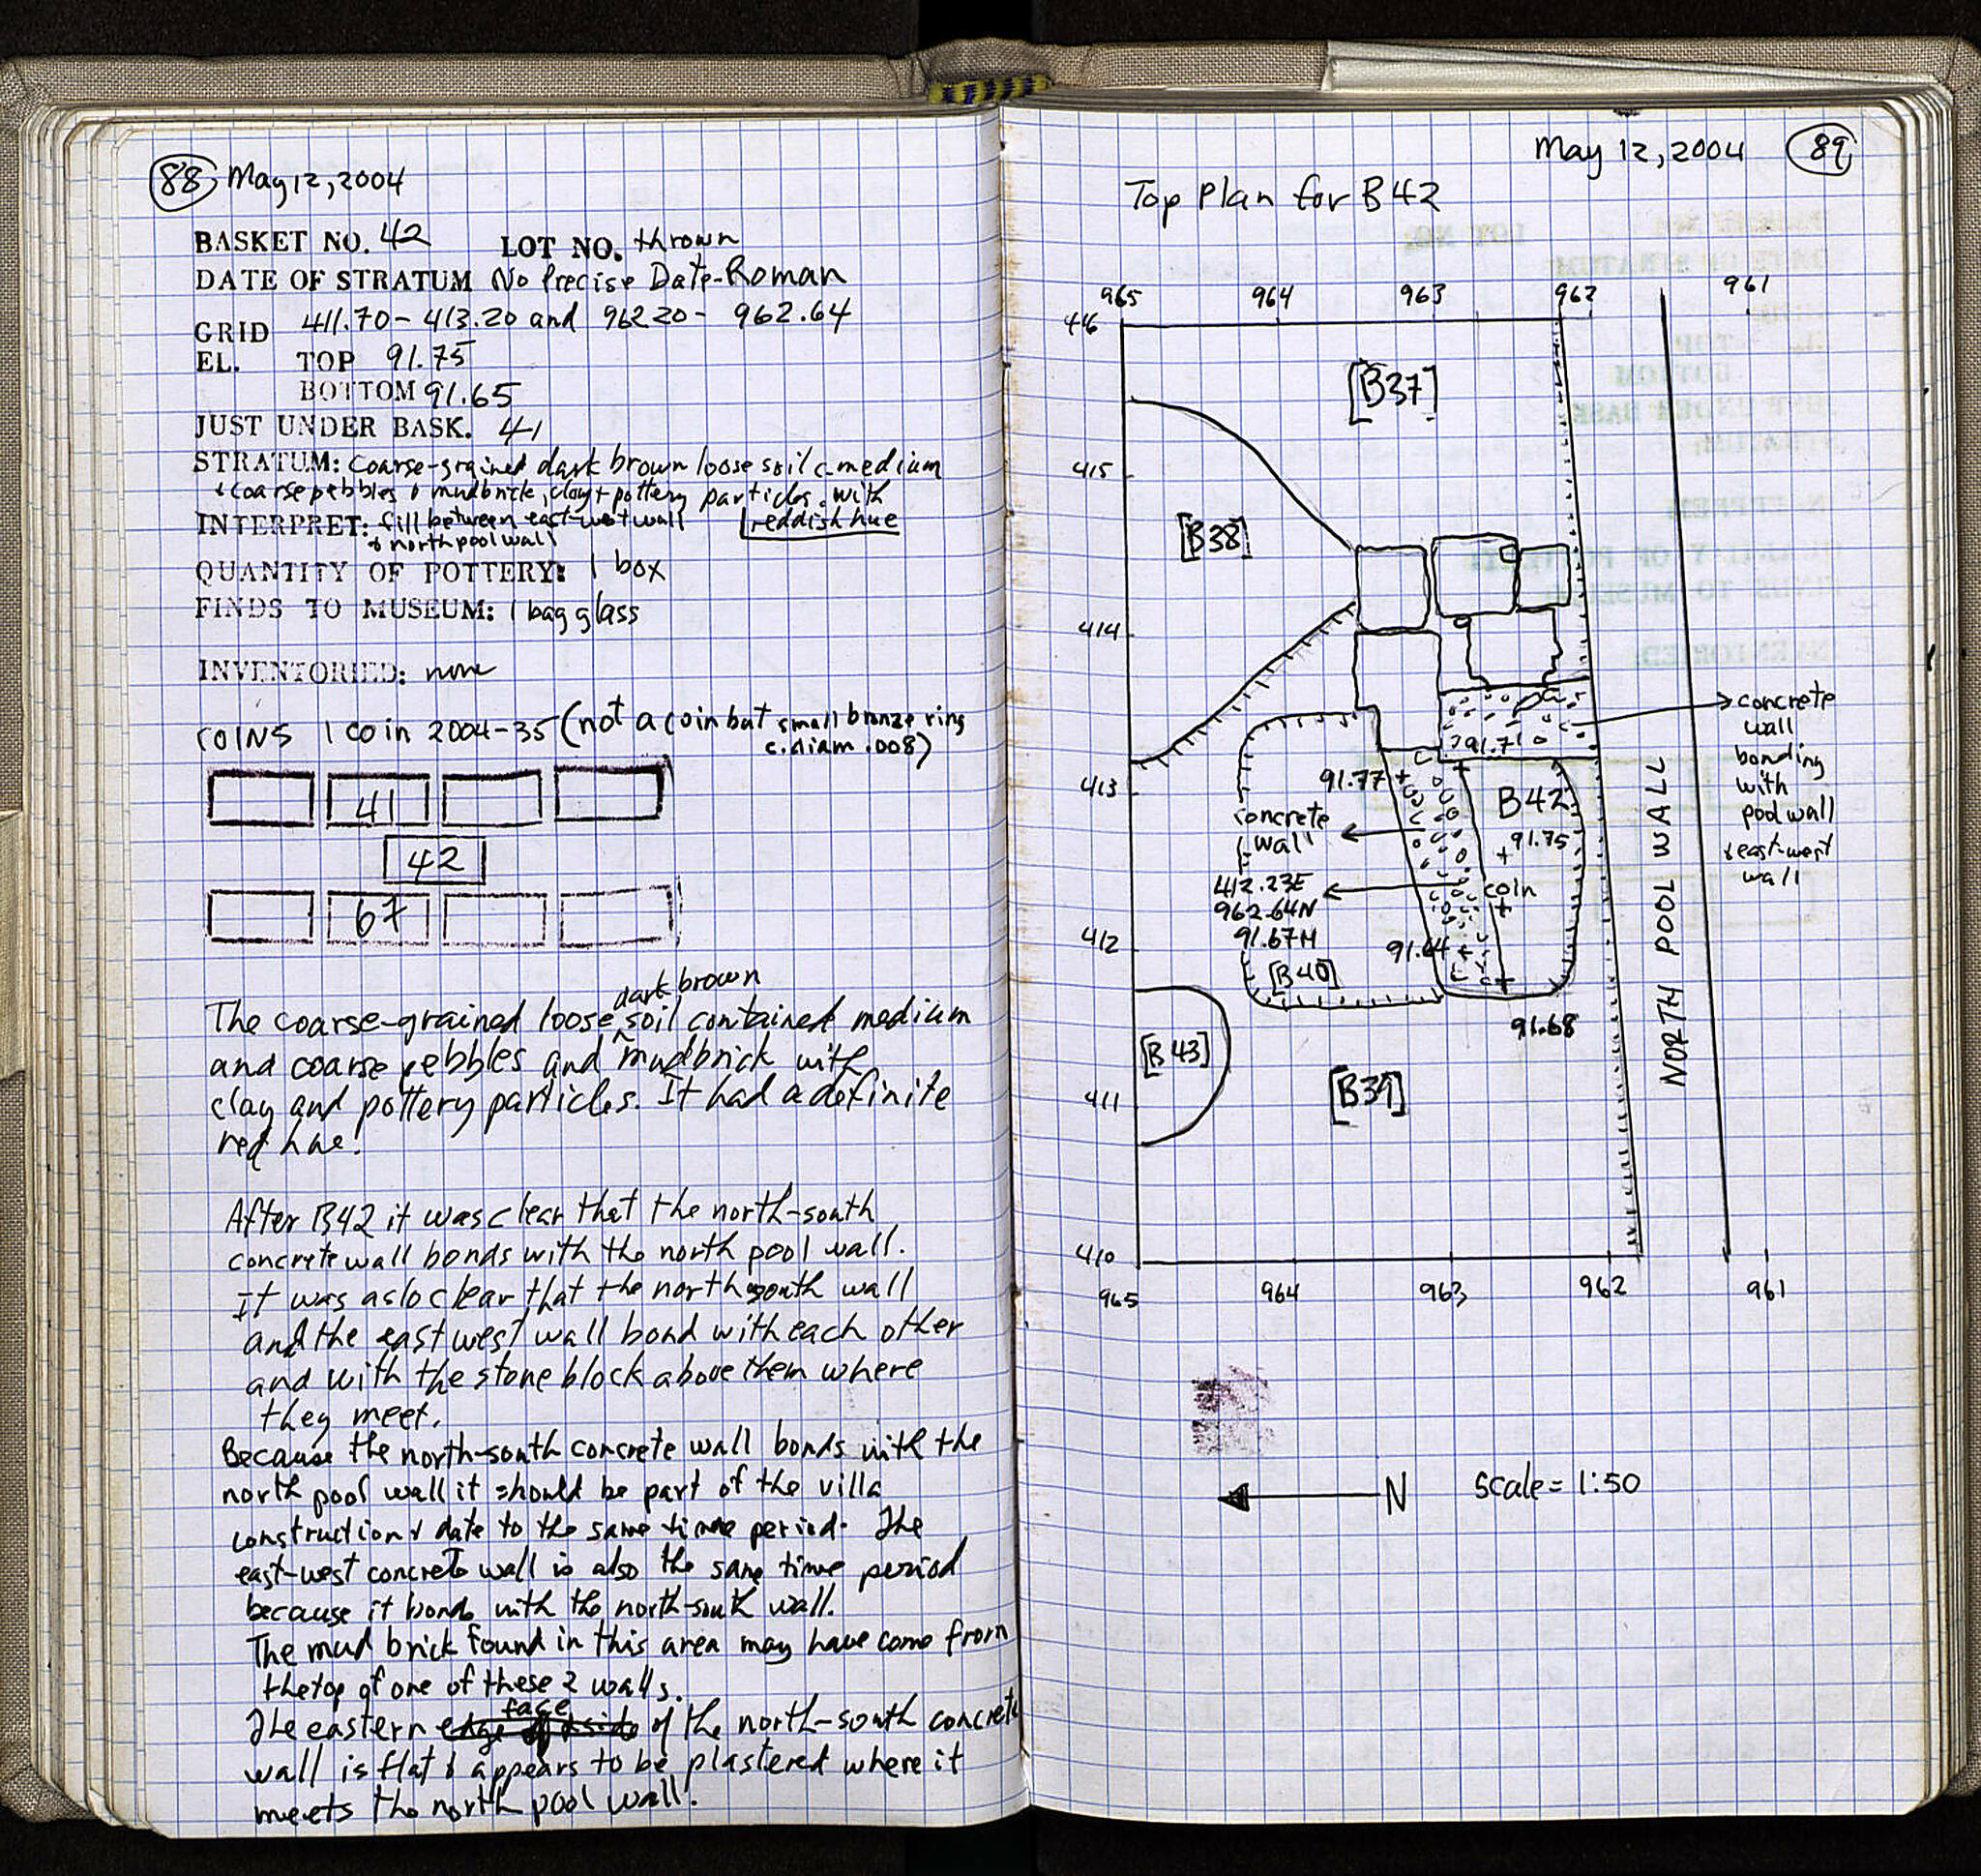 88 May 12, 2004
BASKET NO. 42 LOT NO. thrown
DATE OF STRATUM No Precise Date-Roman
GRID 411.70 - 413.20 and 962.20 - 962.64
EL. TOP 91.75
BOTTOM 91.65
JUST UNDER BASK. 41
STRATUM: coarse-grained dark brown loose soil c medium
& coarse pebbles & mudbrick, clay + pottery particles. with
reddish hue
INTERPRET: fill between east-west wall
& north pool wall
QUANTITY OF POTTERY: 1 box
FINDS TO MUSEUM: 1 bag glass
INVENTORIED: none
COINS 1 coin 2004-35 (not a coin but small bronze ring
c. diam .008)
41
42
67
The coarse-grained loose dark brown soil contained medium
and coarse pebbles and mudbrick with
clay and pottery particles. It had a definite
red hue!
After B42 it was clear that the north-south
concrete wall bonds with the north pool wall.
It was aslo clear that the north south wall
and the east west wall bond with each other
and with the stone block above them where
they meet.
Because the north-south concrete wall bonds with the
north pool wall it should be part of the villa
construction & date to the same time period. The
east-west concrete wall is also the same time period
because it bonds with the north-south wall.
The mud brick found in this area may have come from
the top of one of these 2 walls.
The eastern face of the north-south concrete
wall is flat & appears to be plastered where it
meets the north pool wall!
May 12, 2004 89
Top Plan for B42
965 964 963 962 961
416
[B37]
415
[B38]
414
concrete
wall
bonding
with
pool wall
& east-west
wall
91.71
413
91.77
B42
concrete
wall
91.75
412.23E
962.64N
91.67H
coin
412
91.64
[B40]
91.68
[B43]
[B39]
411
NORTH POOL WALL
410
965 964 963 962 961
N Scale = 1:50